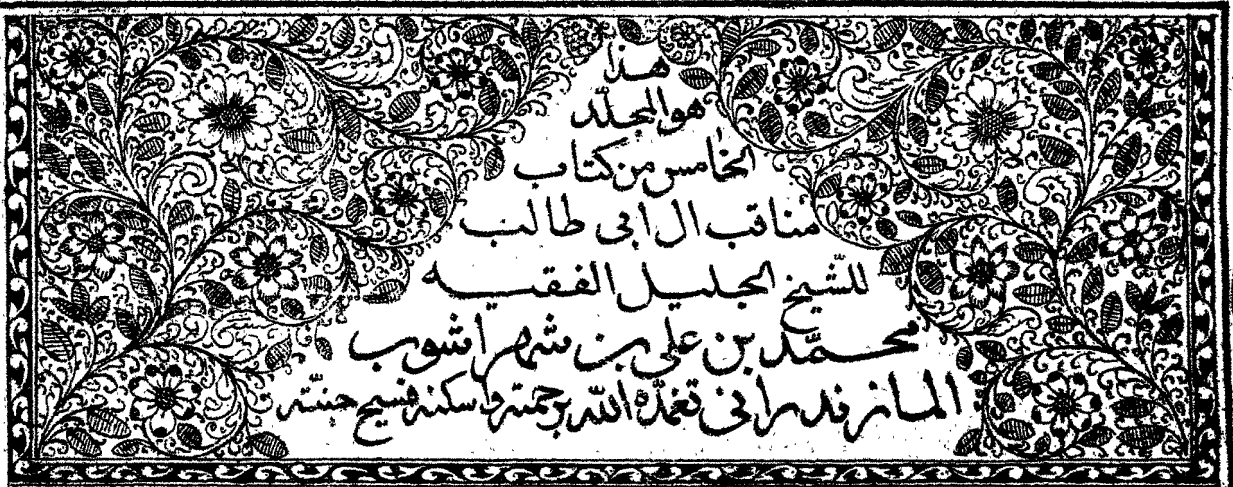 هذا
هو المجلّد
الخامس من كتاب
مناقب ال ابى طالب
للشّيخ الجليل الفقيه
محمّد بن على بن شهراشوب
المازندرانى تغمّده الله برحمته واسكنه فسيح جنّته